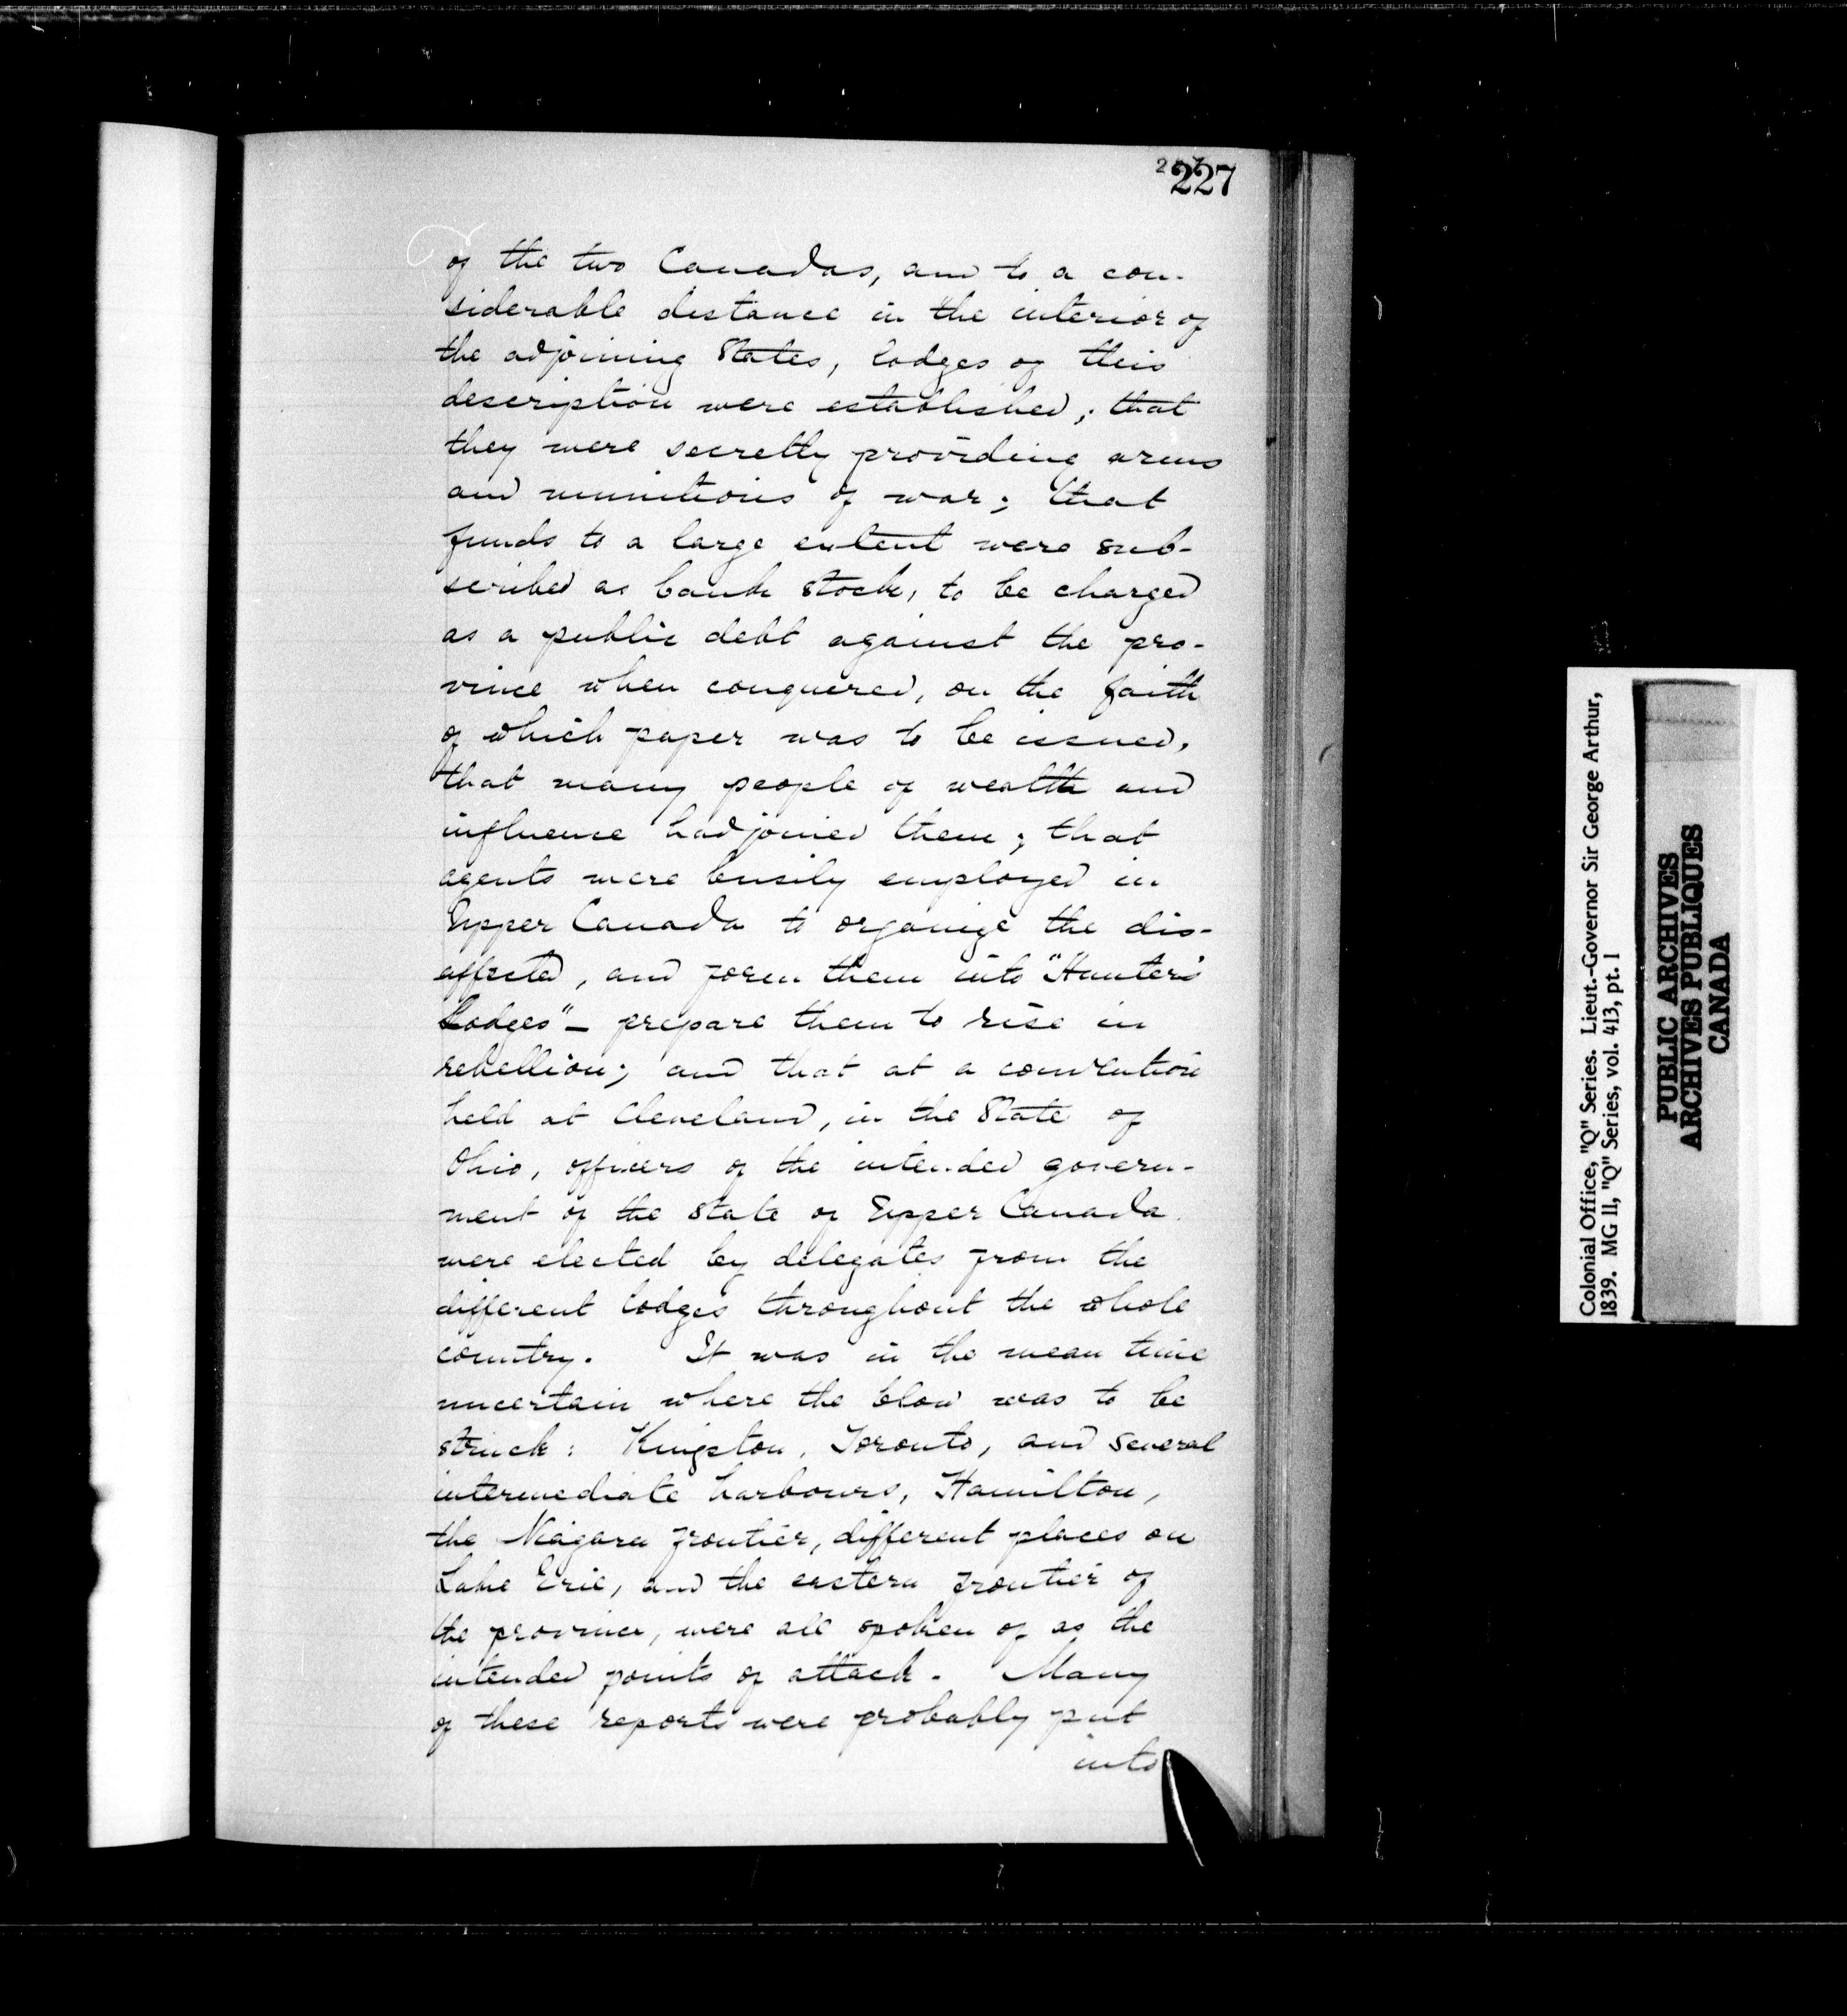 227
of the two Canadas, and to a con-
siderable distance in the interior of
the adjoining States, lodges of this
description were established; that
they were secretly providing arms
and munitions of war; that
funds to a large extent were sub-
scribed as bank stock, to be charged
as a public debt against the pro-
vince when conquered, on the faith
of which paper was to be issued,
that many people of wealth and
influence had joined them; that
agents were busily employed in
Upper Canada to organize the dis-
affected, and form them into "Hunter's
Lodges" – prepare them to rise in
rebellion; and that at a convention
held at Cleveland, in the State of
Ohio, officers of the intended govern-
ment of the State of Upper Canada
were elected by delegates from the
different lodges throughout the whole
country. It was in the mean time
uncertain where the blow was to be
struck: Kingston, Toronto, and several
intermediate harbours, Hamilton,
the Niagara frontier, different places on
Lake Erie, and the eastern frontier of
the province, were all spoken of as the
intended points of attack. Many
of these reports were probably put
into
Colonial Office, "Q" Series. Lieut.-Governor Sir George Arthur,
1839. MG 11, "Q" Series, vol. 413, pt. 1
PUBLIC ARCHIVES
ARCHIVES PUBLIQUES
CANADA